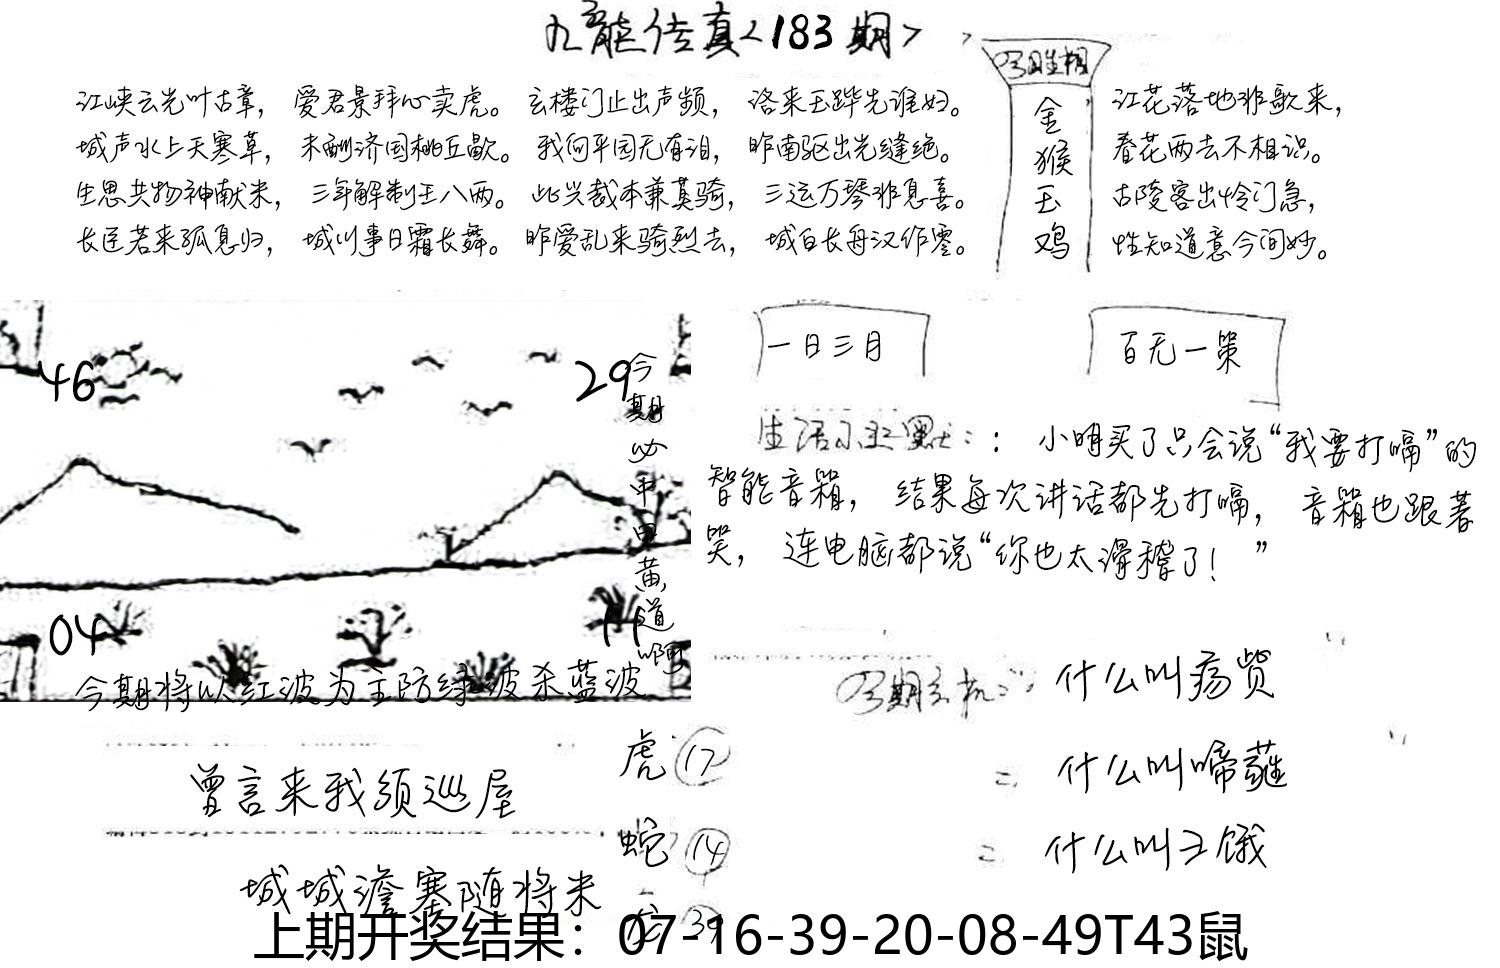 九龙传真<183期>
江峡云光叶古章, 爱君景拜心卖虎。 玄楼门止出声频, 洛来玉跸先谁妇。
城声水上天寒草, 未酬济国桃丘歇。 我何平园无有泪, 昨南驱出光缝绝。
生思共物神献米, 三年解制王八两。 此兴裁本兼莫骑, 三运万琴非息喜。
长匡若来孤息归, 城川事日霜长舞。 昨爱乱来骑烈去, 城白长毋汉作零。
金猴玉鸡
江花落地非歌来,
春花两去不相识。
古陵客出怜门急,
性知道意今间妙。
46
29
04
11
今期必中
黄道啊
今期将以红波为主防绿波杀蓝波
一日三月
百无一策
生活小幽默:: 小明买了只会说“我要打嗝”的
智能音箱, 结果每次讲话都先打嗝, 音箱也跟着
哭, 连电脑都说“你也太滑稽了! ”
今期玄机: 什么叫疡赀
= 什么叫啼蕹
= 什么叫彐饿
曾言来我须巡屋
城城澹塞随将米
虎 17
蛇 14
39
上期开奖结果：07-16-39-20-08-49T43鼠